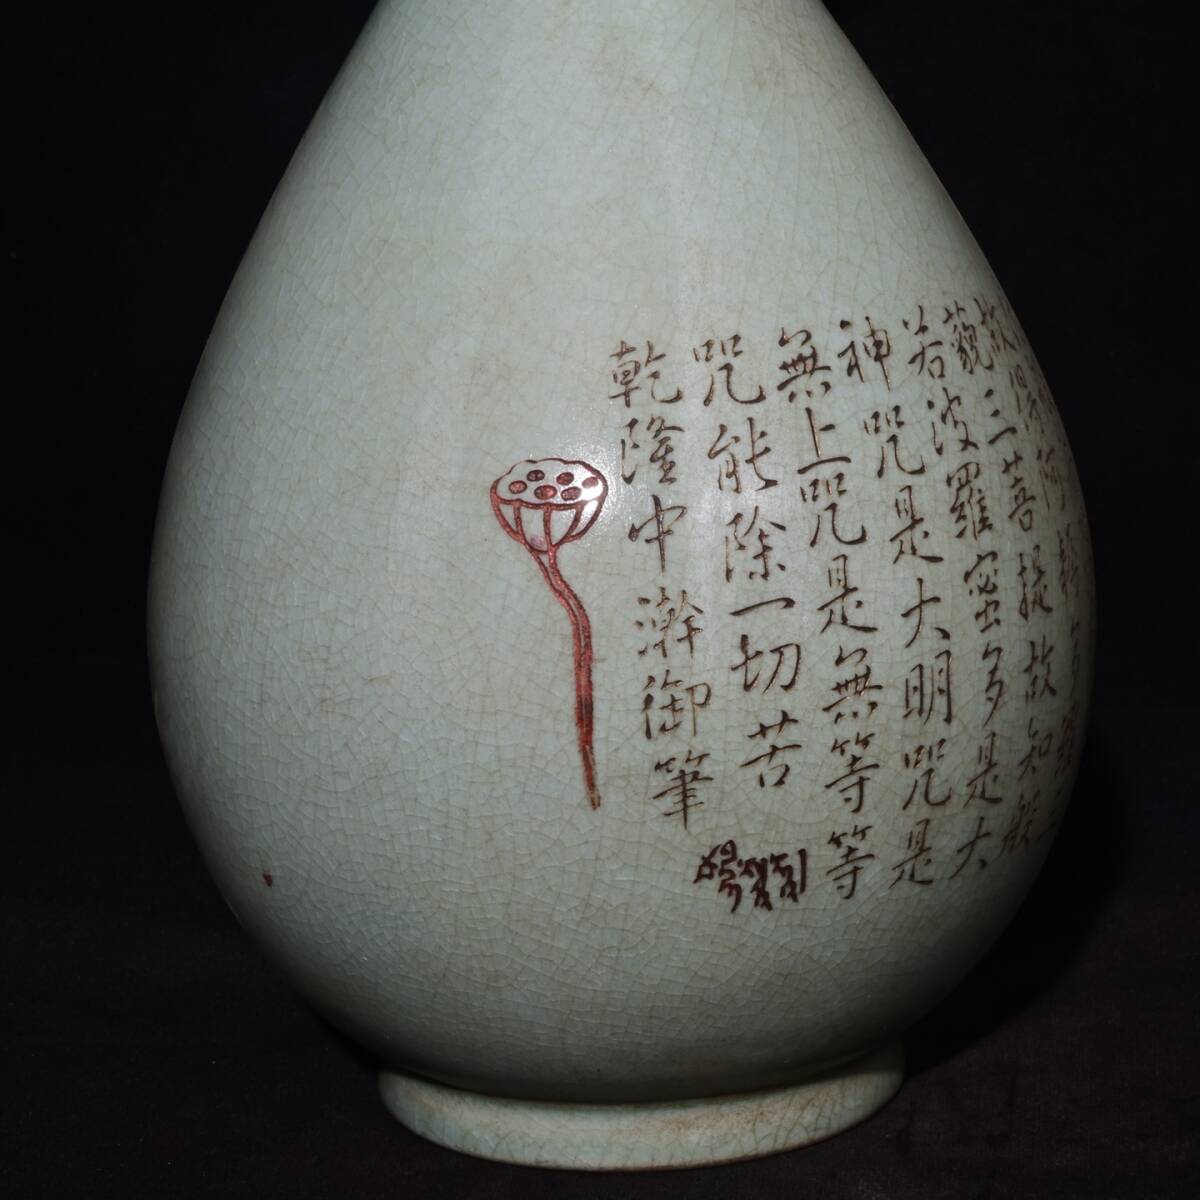 故得阿耨多羅三
藐三菩提故知般
若波羅蜜多是大
神咒是大明咒是
無上咒是無等等
咒能除一切苦
乾隆中澣御筆